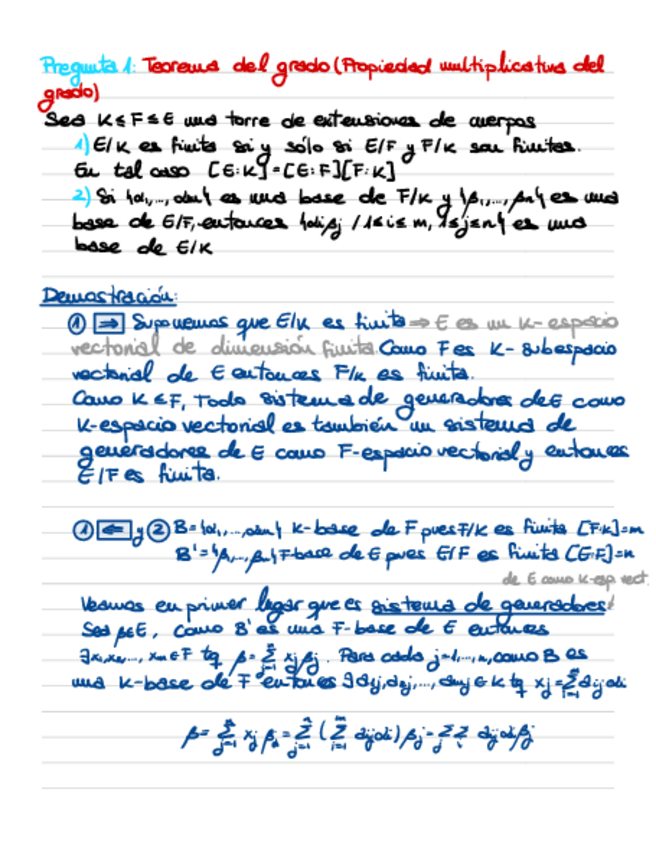 Pregunta 1: Teorema del grado (Propiedad multiplicativa del
grado)
Sea K ≤ F ≤ E una torre de extensiones de cuerpos
1) E/K es finita si y sólo si E/F y F/K son finitas.
En tal caso [E:K]=[E:F][F:K]
2) Si {α₁,..., αm} es una base de F/K y {β₁,..., βn} es una
base de E/F, entonces {αiβj / 1≤i≤m, 1≤j≤n} es una
base de E/K
Demostración:
① ⇒ Suponemos que E/K es finita ⇒ E es un K-espacio
vectorial de dimensión finita. Como F es K-subespacio
vectorial de E entonces F/K es finita.
Como K ≤ F, Todo sistema de generadores de E como
K-espacio vectorial es también un sistema de
generadores de E como F-espacio vectorial y entonces
E/F es finita.
① ⇐ y ② B={α₁,...,αm} K-base de F pues F/K es finita [F:K]=m
B'={β₁,...,βn} F-base de E pues E/F es finita [E:F]=n
de E como K-esp vect.
Veamos en primer lugar que es sistema de generadores
Sea β∈E, como B' es una F-base de E entonces
∃x₁,x₂,..., xn ∈ F tq β=∑ⁿⱼ₌₁ xjβj. Para cada j=1,...,n, como B es
una K-base de F entonces ∃ a₁j,a₂j,..., amj ∈ K tq xj=∑ᵐᵢ₌₁ aijαi
β=∑ⁿⱼ₌₁ xjβj=∑ⁿⱼ₌₁ (∑ᵐᵢ₌₁ aijαi) βj=∑ⱼ∑ᵢ aijαiβj